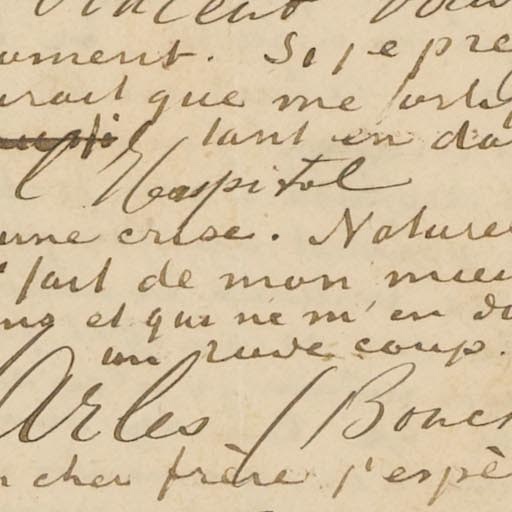 Vincent
ument. Si je pre
urait que me
tant en da
l'Hospital
une crise. Nature
fait de mon mieu
ns et qui ne m'en do
un rude coup.
Arles (Bouch
n cher frère j'espè